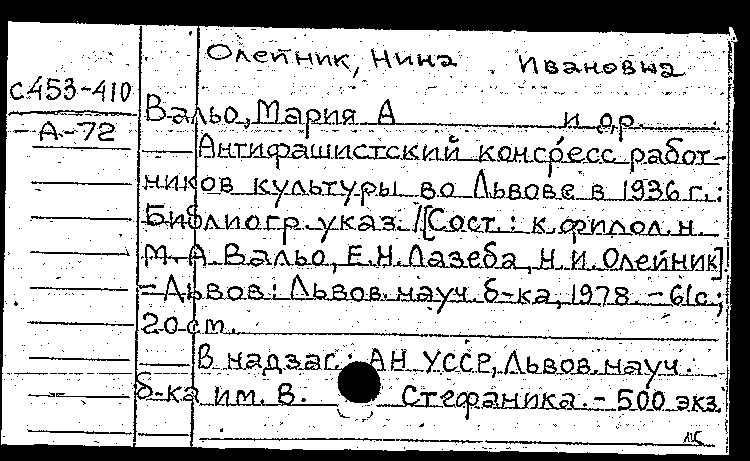 Олейник, Нина Ивановна
С453-410
А-72
Вальо, Мария А и др.
Антифашистский конгресс работ-
ников культуры во Львове в 1936 г.:
Библиогр. указ. /[Сост.: к. филол. н.
М. А. Вальо, Е. Н. Лазеба, Н. И. Олейник]
- Львов: Львов. науч. б-ка, 1978. - 61 с.;
20 см.
В надзаг.: АН УССР, Львов. науч.
б-ка им. В. Стефаника. - 500 экз.